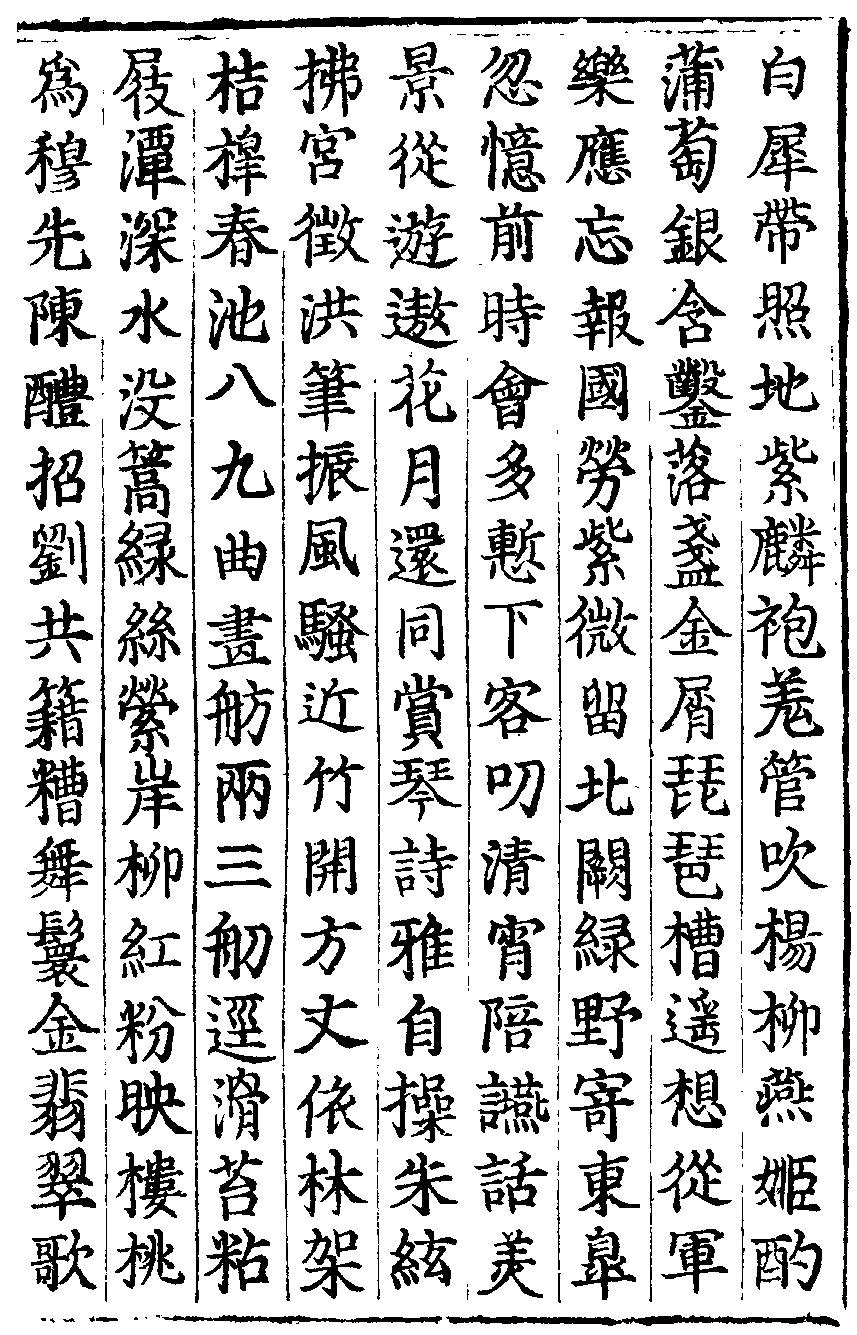 白犀帶照地紫麟袍羗管吹楊柳燕姬酌
蒲萄銀含鑿落盞金屑琵琶槽遥想從軍
樂應忘報國勞紫微留北闕緑野寄東臯
忽憶前時會多慙下客叨清宵陪讌話美
景從遊遨花月還同賞琴詩雅自操朱絃
拂宮徴洪筆振風騷近竹開方丈依林架
桔橰春池八九曲畫舫兩三舠逕滑苔粘
屐潭深水没篙緑絲縈岸柳紅粉映樓桃
爲穆先陳醴招劉共籍糟舞鬟金翡翠歌